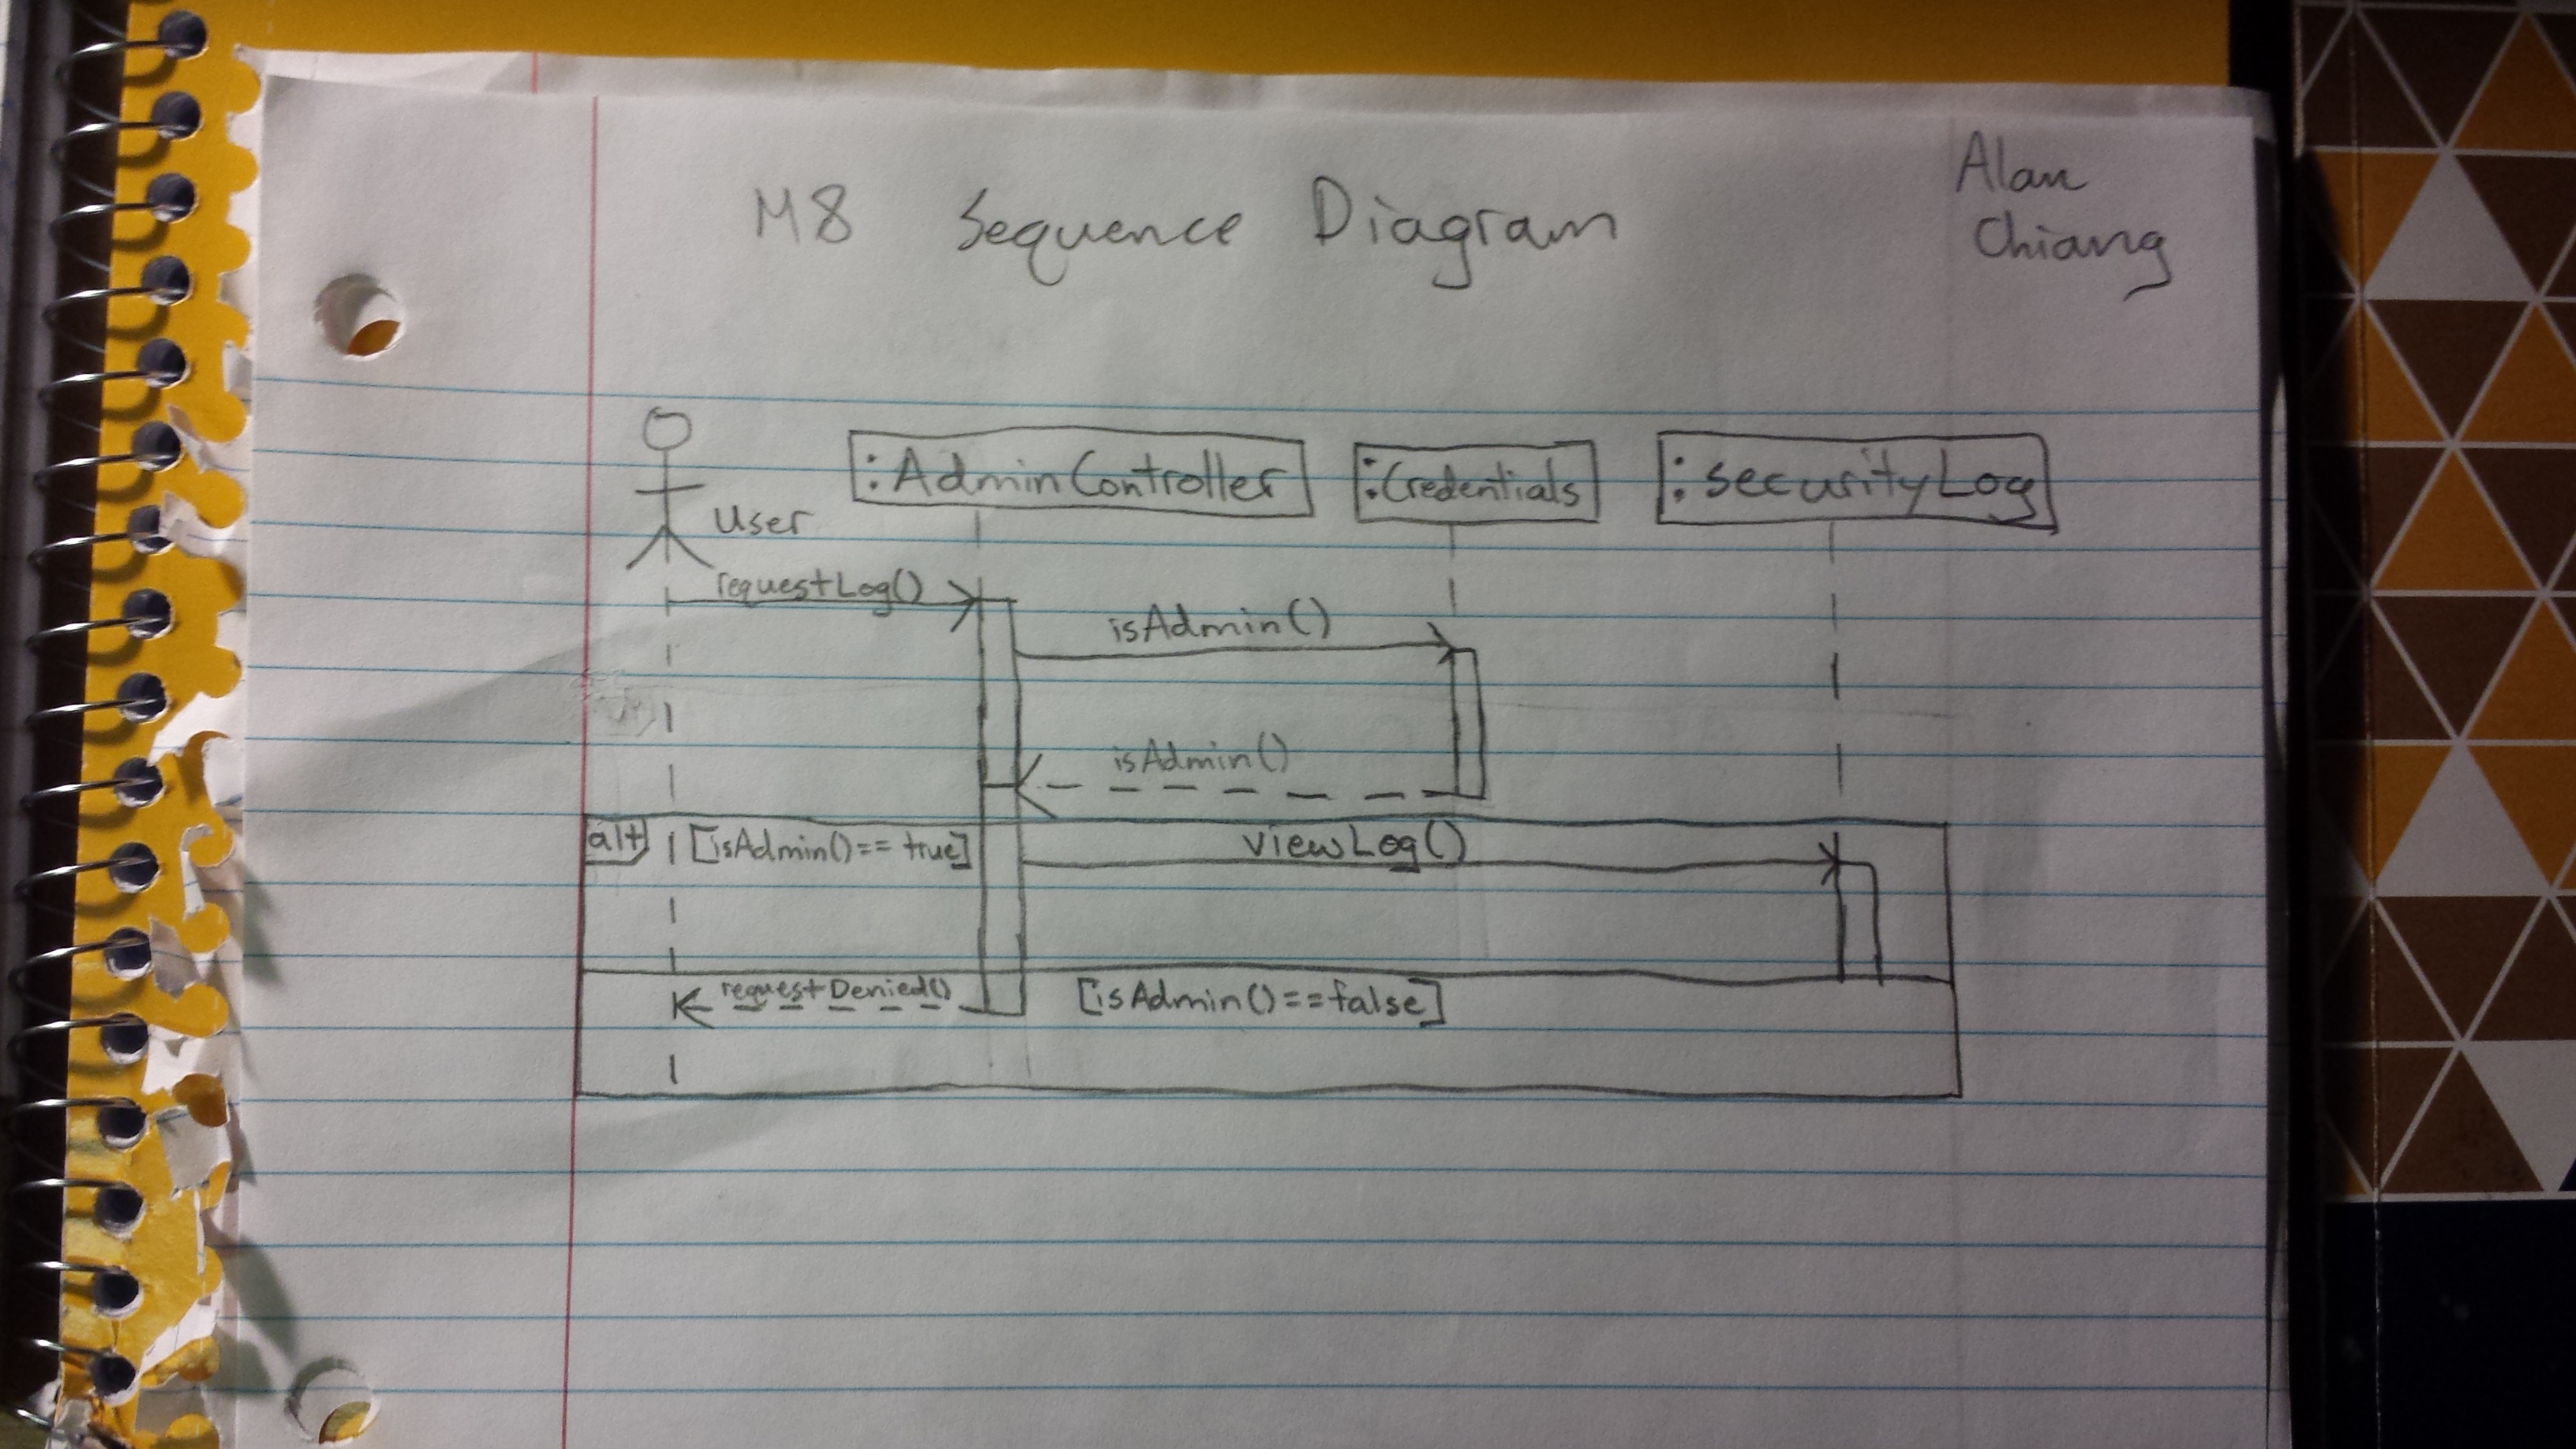 M8 Sequence Diagram
Alan
Chiang
:AdminController
:Credentials
:securityLog
User
requestLog()
isAdmin()
isAdmin()
alt
[isAdmin()== true]
viewLog()
requestDenied()
[isAdmin()==false]